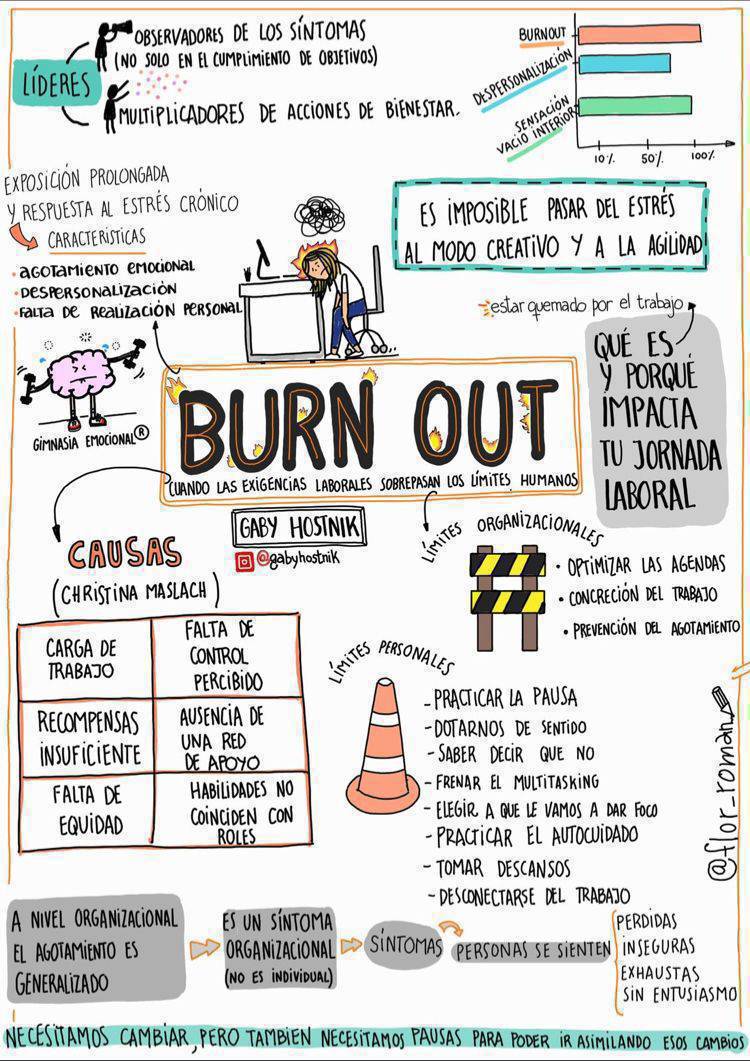 LÍDERES
OBSERVADORES DE LOS SÍNTOMAS
(NO SOLO EN EL CUMPLIMIENTO DE OBJETIVOS)
MULTIPLICADORES DE ACCIONES DE BIENESTAR.
BURNOUT
DESPERSONALIZACIÓN
SENSACIÓN
VACIO INTERIOR
10%. 50%. 100%.
EXPOSICIÓN PROLONGADA
Y RESPUESTA AL ESTRÉS CRÓNICO
CARACTERÍSTICAS
• AGOTAMIENTO EMOCIONAL
• DESPERSONALIZACIÓN
• FALTA DE REALIZACIÓN PERSONAL
ES IMPOSIBLE PASAR DEL ESTRÉS
AL MODO CREATIVO Y A LA AGILIDAD
estar quemado por el trabajo
QUÉ ES
Y PORQUÉ
IMPACTA
TU JORNADA
LABORAL
GIMNASIA EMOCIONAL®
BURN OUT
CUANDO LAS EXIGENCIAS LABORALES SOBREPASAN LOS LÍMITES HUMANOS
GABY HOSTNIK
@gabyhostnik
CAUSAS
(CHRISTINA MASLACH)
CARGA DE
TRABAJO
FALTA DE
CONTROL
PERCIBIDO
RECOMPENSAS
INSUFICIENTE
AUSENCIA DE
UNA RED
DE APOYO
FALTA DE
EQUIDAD
HABILIDADES NO
COINCIDEN CON
ROLES
LÍMITES ORGANIZACIONALES
• OPTIMIZAR LAS AGENDAS
• CONCRECIÓN DEL TRABAJO
• PREVENCIÓN DEL AGOTAMIENTO
LÍMITES PERSONALES
- PRACTICAR LA PAUSA
- DOTARNOS DE SENTIDO
- SABER DECIR QUE NO
- FRENAR EL MULTITASKING
- ELEGIR A QUE LE VAMOS A DAR FOCO
- PRACTICAR EL AUTOCUIDADO
- TOMAR DESCANSOS
- DESCONECTARSE DEL TRABAJO
@flor_roman
A NIVEL ORGANIZACIONAL
EL AGOTAMIENTO ES
GENERALIZADO
ES UN SÍNTOMA
ORGANIZACIONAL
(NO ES INDIVIDUAL)
SÍNTOMAS
PERSONAS SE SIENTEN
PERDIDAS
INSEGURAS
EXHAUSTAS
SIN ENTUSIASMO
NECESITAMOS CAMBIAR, PERO TAMBIEN NECESITAMOS PAUSAS PARA PODER IR ASIMILANDO ESOS CAMBIOS